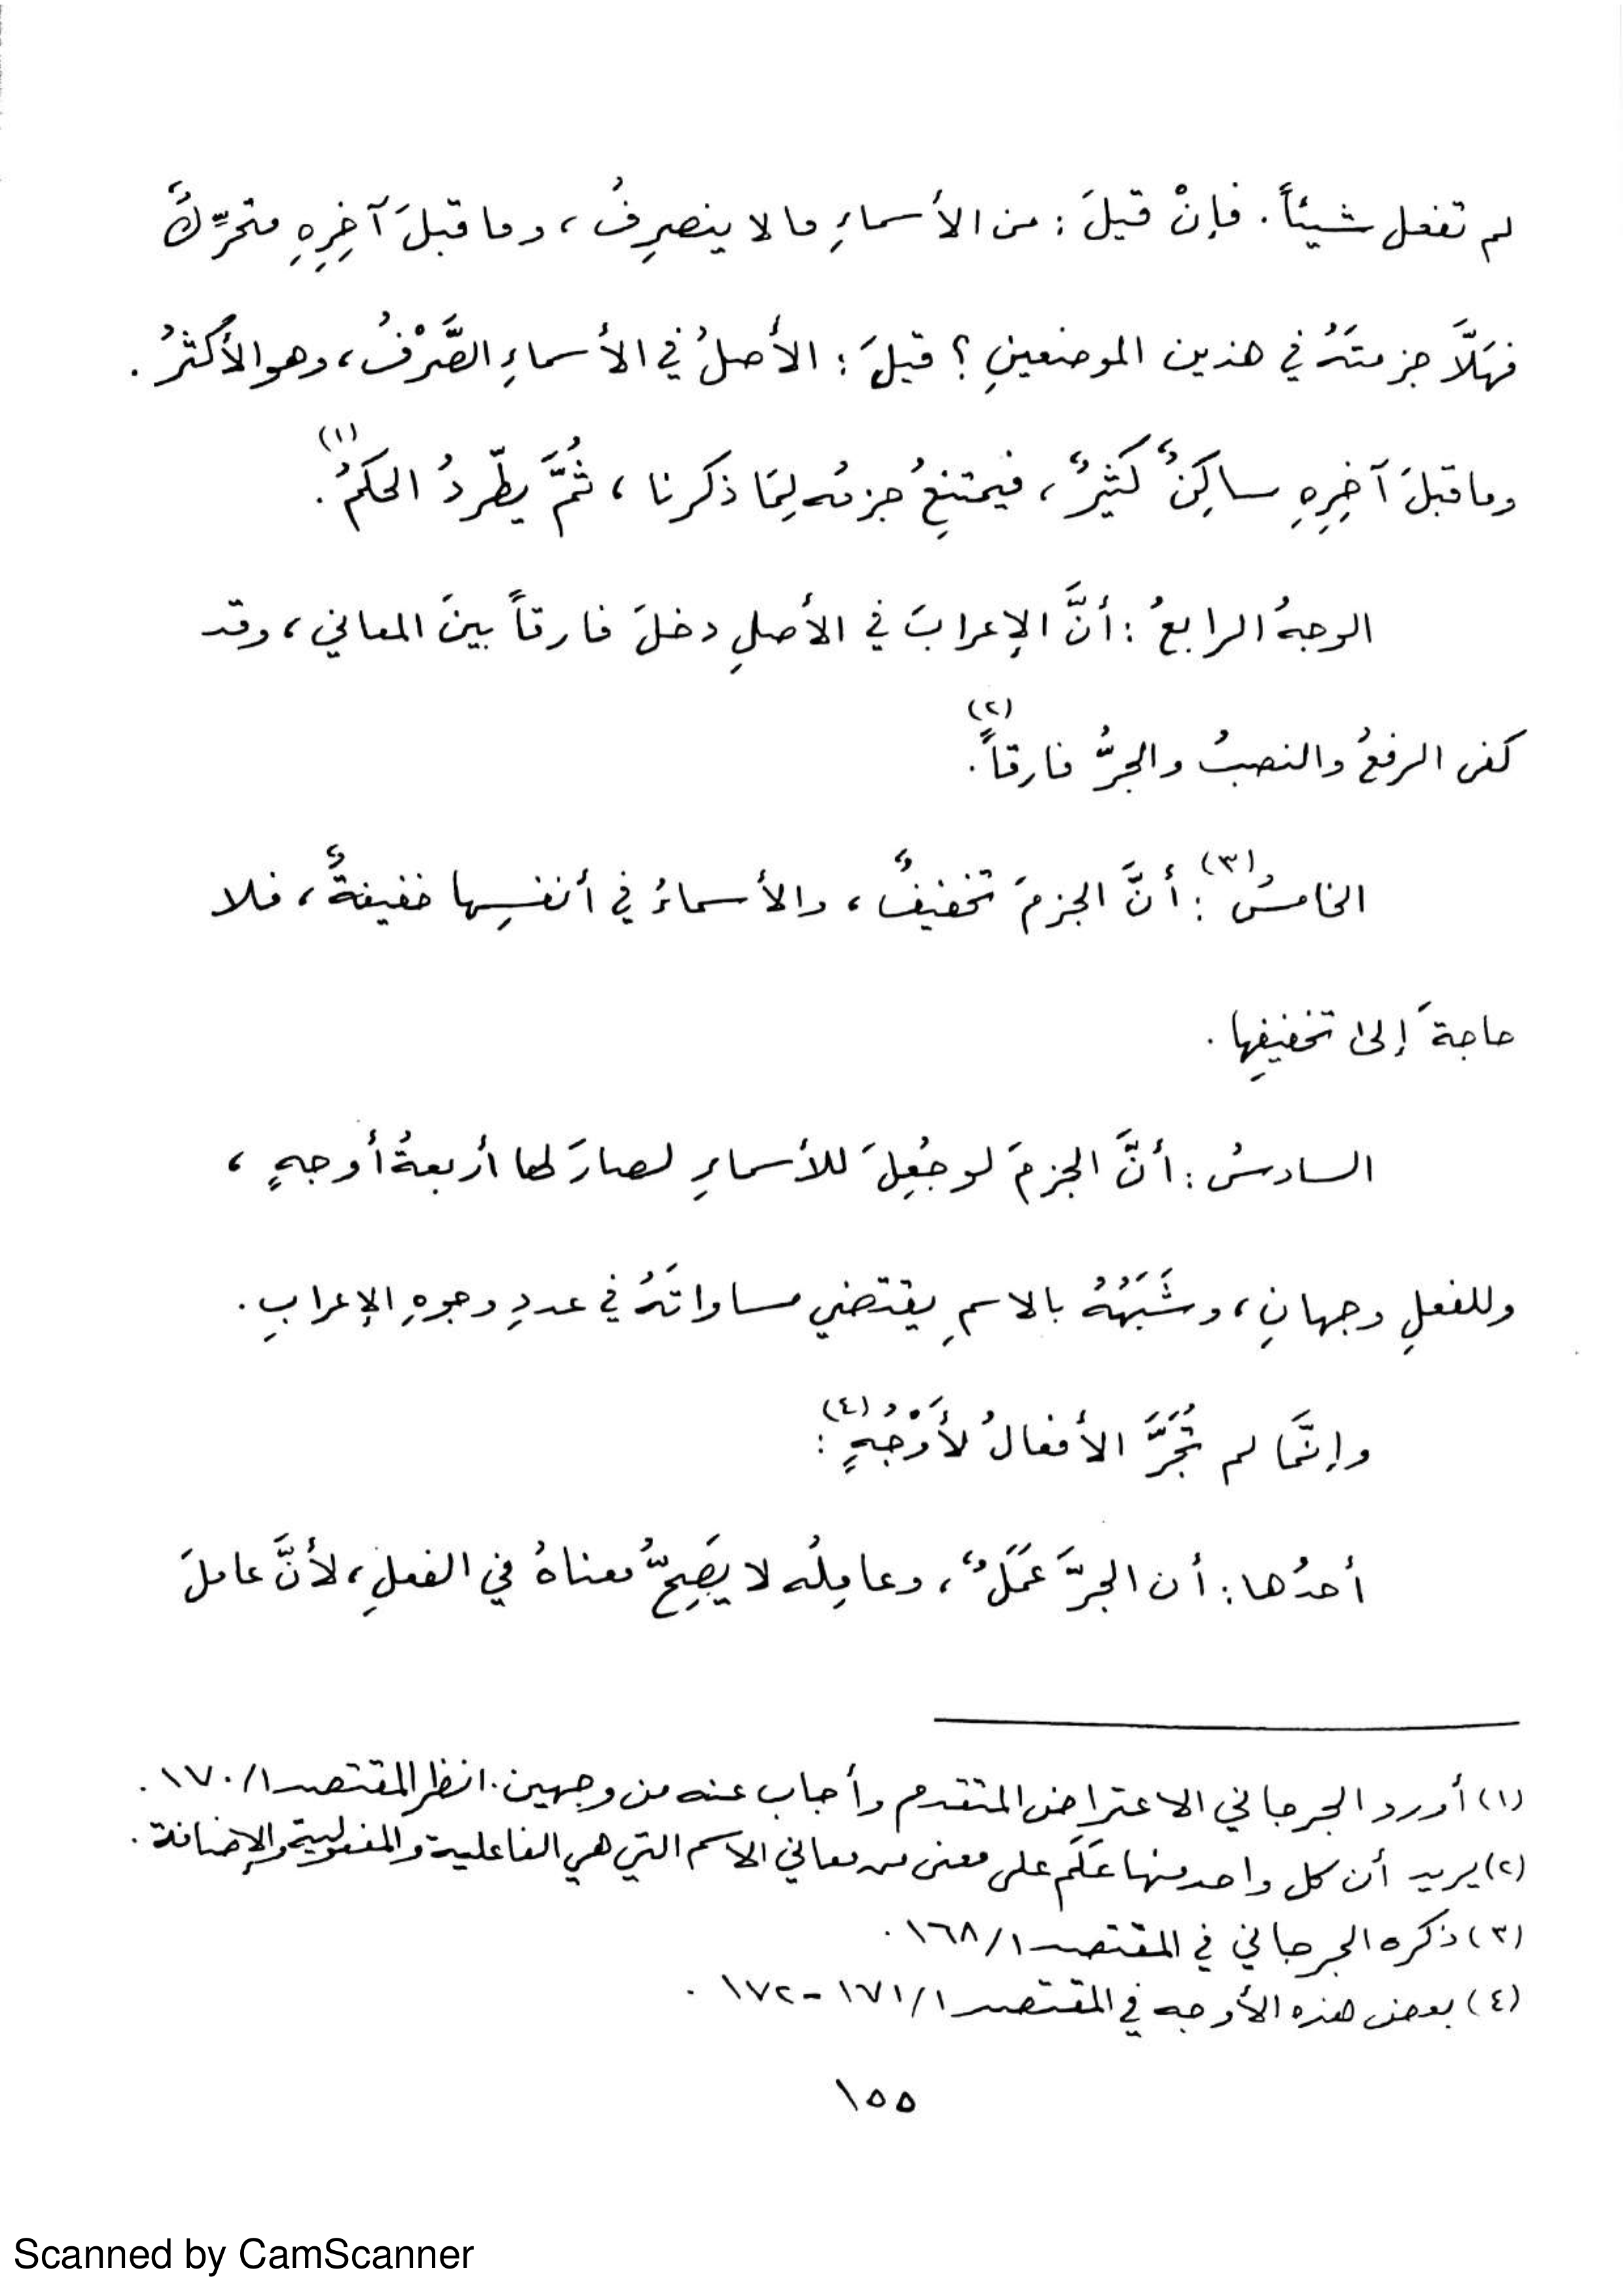 لم تفعل شيئاً . فإنْ قيلَ : من الأسماءِ ما لا ينصرِفُ ، وما قبلَ آخِرِهِ متحرِّكٌ
فهَلَّا جزمتَهُ في هذين الموضعينِ ؟ قيلَ : الأصلُ في الأسماءِ الصَّرْفُ ، وهو الأكثرُ .
وما قبلَ آخِرِهِ ساكِنٌ كثيرٌ ، فيمتنِعُ جزمُه لِمَا ذكرنا ، ثُمَّ يطّردُ الحكمُ (١) .
الوجهُ الرابعُ : أنَّ الإعرابَ في الأصلِ دخلَ فارقاً بينَ المعاني ، وقد
كفى الرفعُ والنصبُ والجرُّ فارقاً (٢) .
الخامسُ (٣) : أنَّ الجزمَ تخفيفٌ ، والأسماءُ في أنفسِها خفيفةٌ ، فلا
حاجةَ إلى تخفيفِها .
السادسُ : أنَّ الجزمَ لو جُعِلَ للأسماءِ لصارَ لها أربعةُ أوجهٍ ،
وللفعلِ وجهانِ ، وشَبَهُهُ بالاسمِ يقتضي مساواتَهُ في عددِ وجوهِ الإعرابِ .
وإنَّما لم تُجَرَّ الأفعالُ لأَوْجُهٍ (٤) :
أحدُها : أن الجرَّ عَمَلٌ ، وعامِلُه لا يَصِحُّ معناهُ في الفعلِ ، لأنَّ عاملَ
(١) أورد الجرجاني الاعتراض المتقدم وأجاب عنه من وجهين . انظر المقتصد ١/ ١٧٠ .
(٢) يريد أن كل واحد منها عَلَم على معنى من معاني الاسم التي هي الفاعلية والمفعولية والإضافة .
(٣) ذكره الجرجاني في المقتصد ١/ ١٦٨ .
(٤) بعض هذه الأوجه في المقتصد ١/ ١٧١ - ١٧٢ .
١٥٥
Scanned by CamScanner